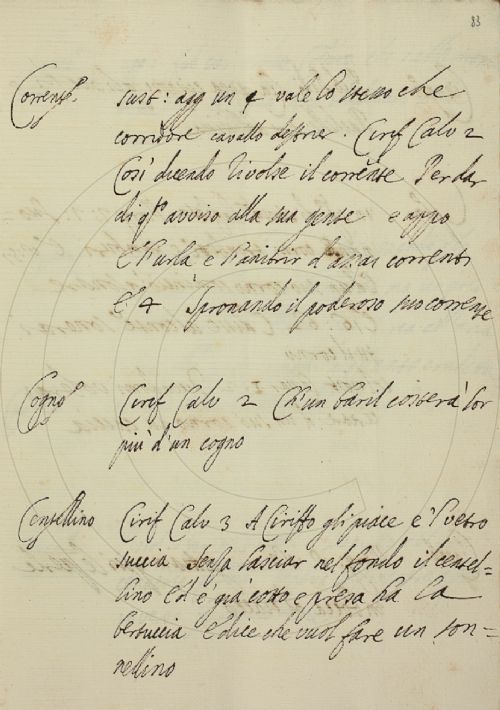 83
Corrente. sust: agg un 4 vale lo stesso che
corridore cavallo destrier. Cirif Calv 2
Così dicendo rivolse il corrente Per dar
di qto avviso alla sua gente e appo
e l'urla e l'anitrir d'assai correnti
e 4 Spronando il poderoso suo corrente
Cogno. Cirif Calv 2 Ch'un baril costerà lor
più d'un cogno
Centellino Cirif Calv 3 A Ciriffo gli piace e 'l vetro
succia Senza lasciar nel fondo il centel=
lino Ed è già cotto e presa ha la
bertuccia E dice che vuol fare un son=
nellino